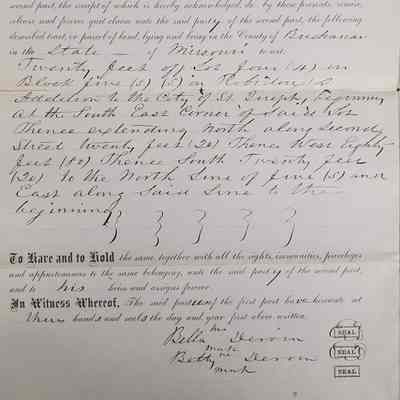 second part, the receipt of which is hereby acknowledged, do by these presents, remise,
release and forever quit claim unto the said party of the second part, the following
described tract, or parcel of land, lying and being in the County of Buchanan
in the State — of Missouri to wit:
Twenty feet off Lot four (4) in
Block five (5) (5) in Robidoux's
Addition to the City of St. Joseph, beginning
at the South East Corner of Said Lot
Thence extending North along Second
Street Twenty feet (20) Thence West Eighty
feet (80) Thence South Twenty feet
(20) to the North Line of five (5) and
East along Said Line to the
beginning
To Have and to Hold the same, together with all the rights, immunities, privileges
and appurtenances to the same belonging, unto the said party of the second part,
and to his heirs and assigns forever.
In Witness Whereof, The said parties of the first part have hereunto set
their hands and seals the day and year first above written.
Bella his mark Devoin SEAL
Betty mark Devoin SEAL
SEAL